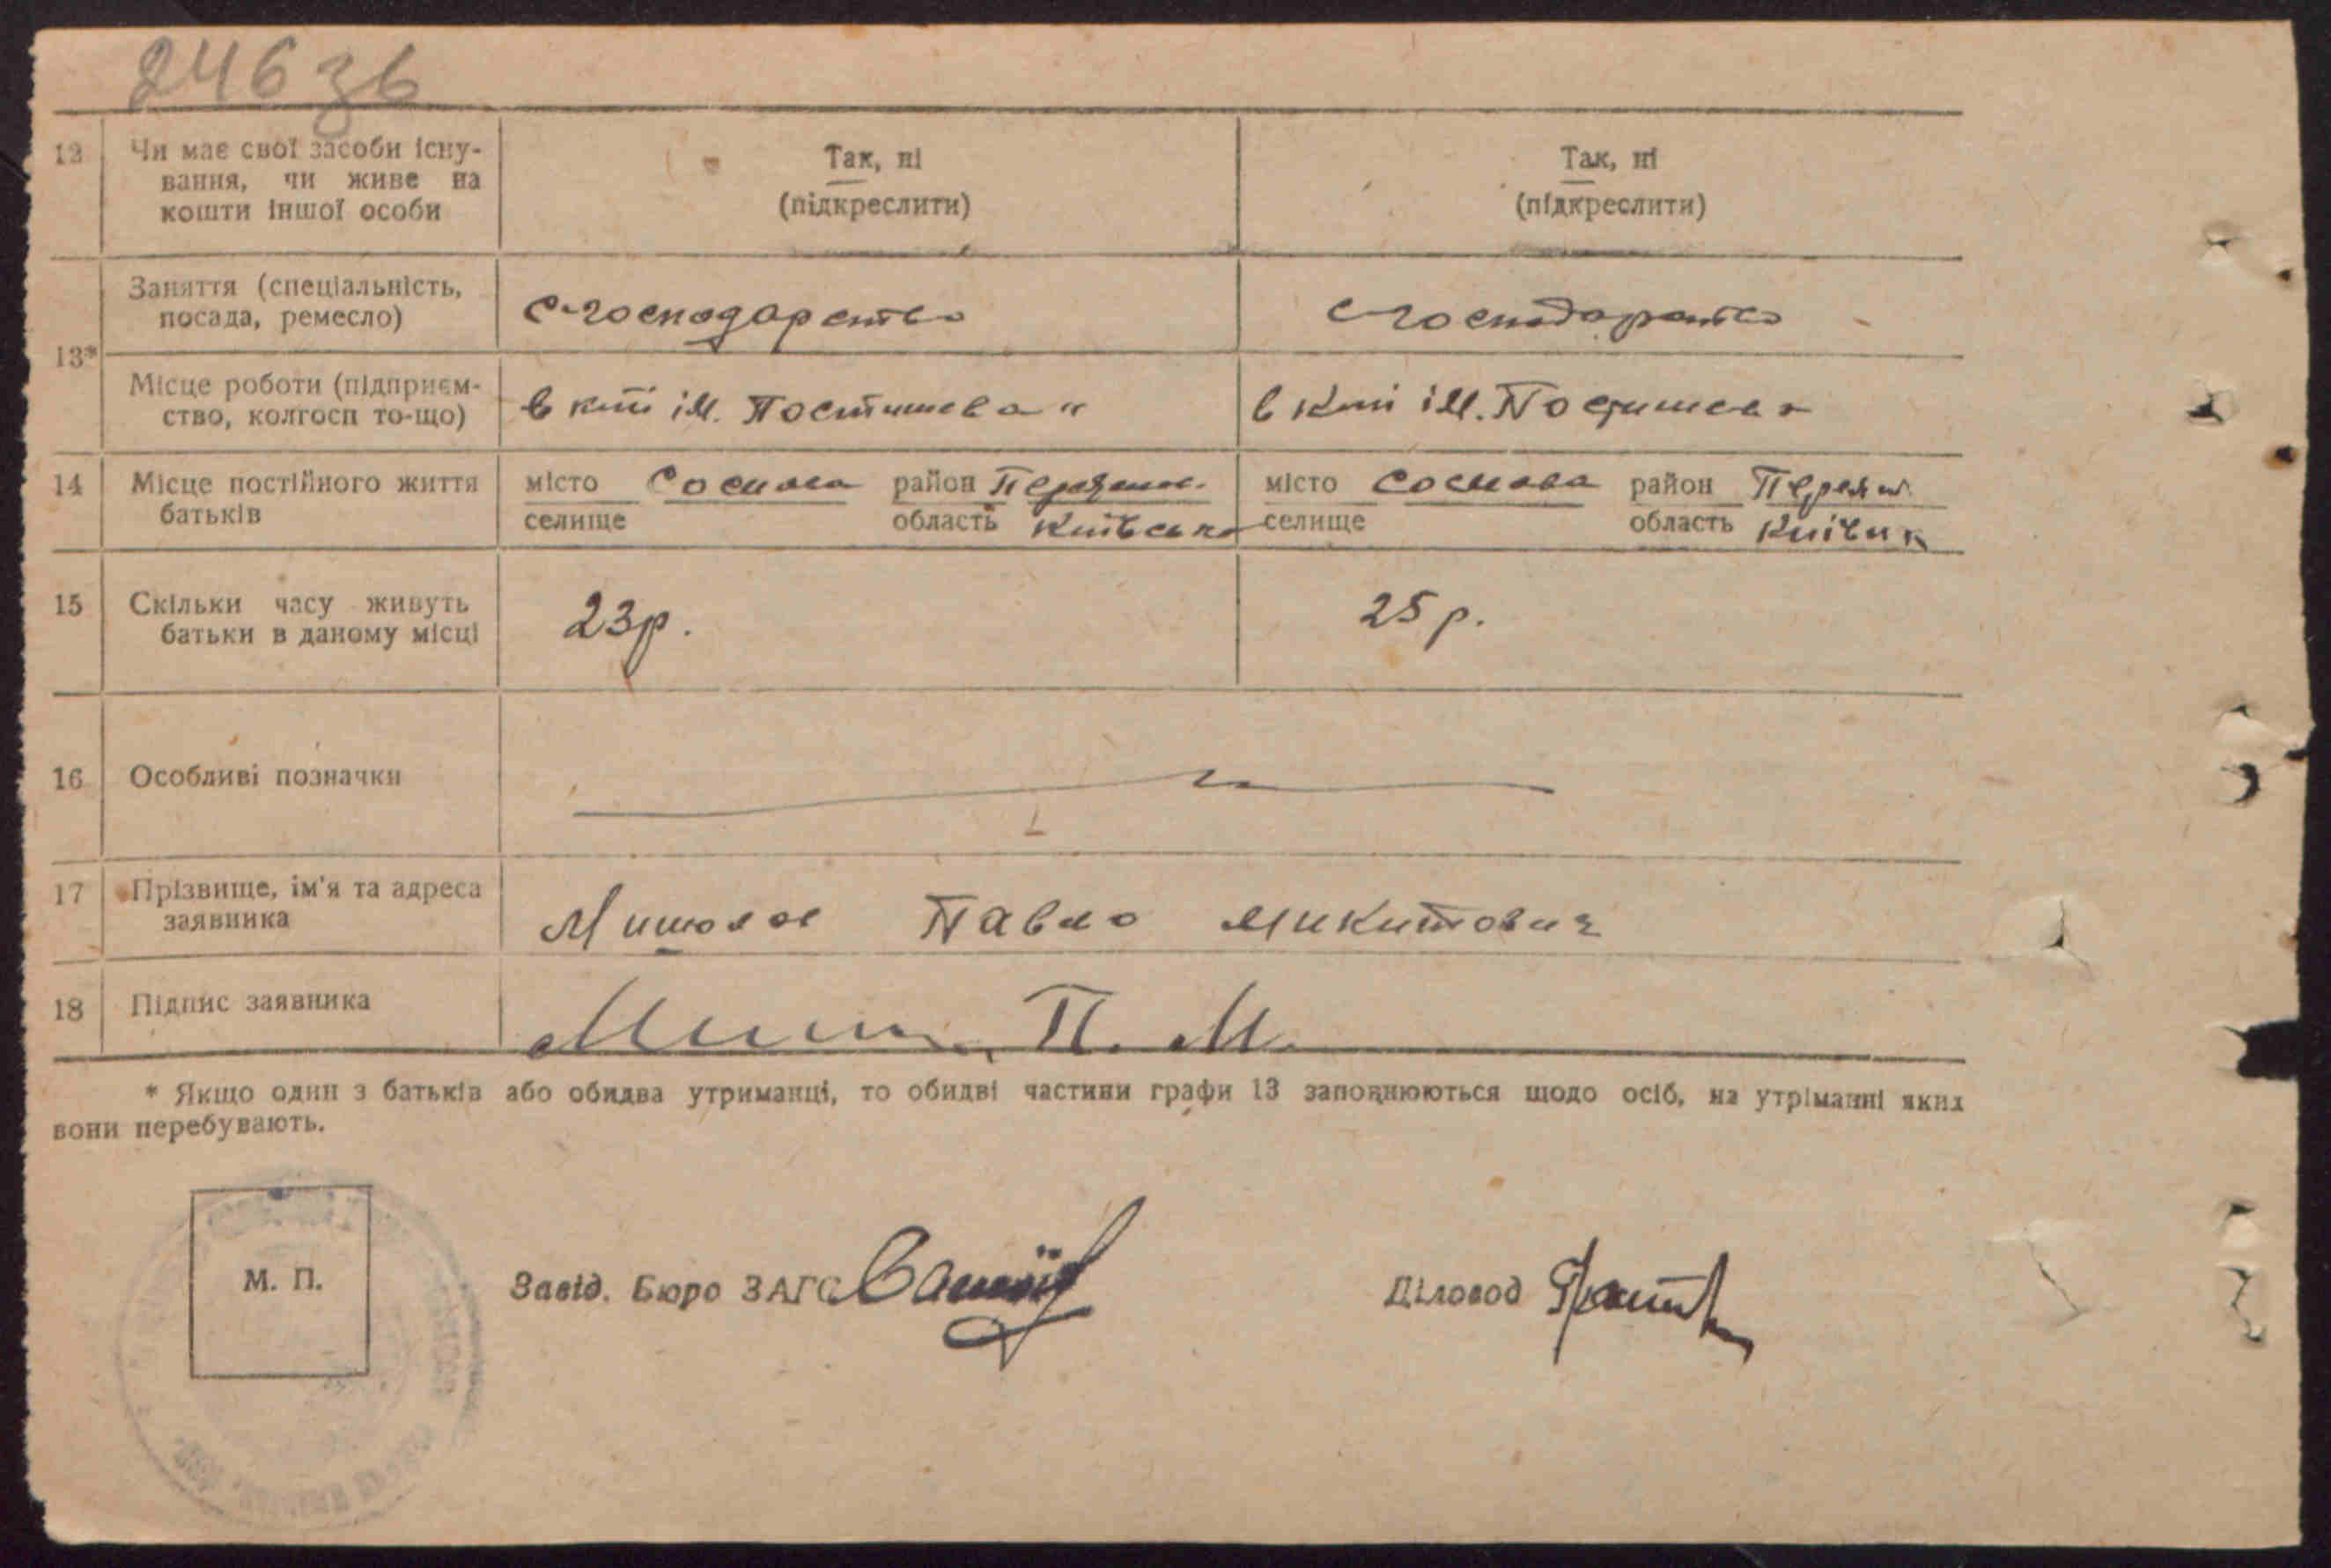 246 зв
12 Чи має свої засоби існу-
вання, чи живе на
кошти іншої особи
Так, ні
(підкреслити)
Так, ні
(підкреслити)
13*
Заняття (спеціальність,
посада, ремесло)
с-господарство
с-господарство
Місце роботи (підприєм-
ство, колгосп то-що)
в к-пі ім. Постишева"
в к-пі ім. Постишева
14 Місце постійного життя
батьків
місто Соснова район
селище область Київська
місто Соснова район
селище область
15 Скільки часу живуть
батьки в даному місці
23 р.
25 р.
16 Особливі позначки
17 Прізвище, ім'я та адреса
заявника
Павло Микитович
18 Підпис заявника
П. М.
* Якщо один з батьків або обидва утриманці, то обидві частини графи 13 заповнюються щодо осіб, на утріманні яких
вони перебувають.
М. П.
Завід. Бюро ЗАГС
Діловод